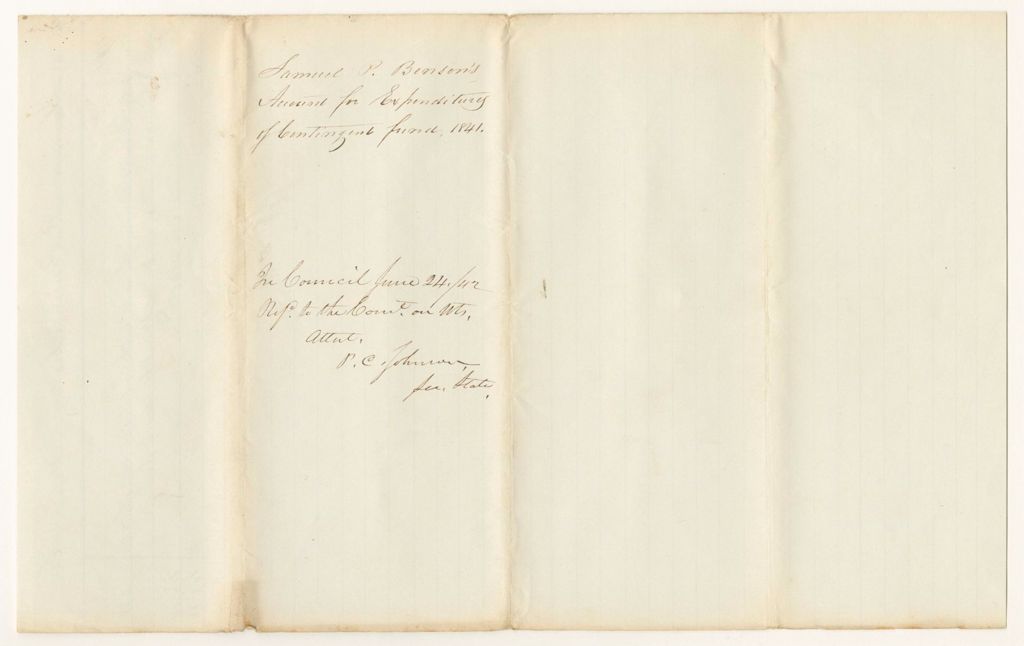 Samuel P. Benson's
Account for Expenditures
of Contingent fund, 1841.
In Council June 24, /42
Refd. to the Comt. on Wts.
Attest.
P. C. Johnson,
Sec. State.